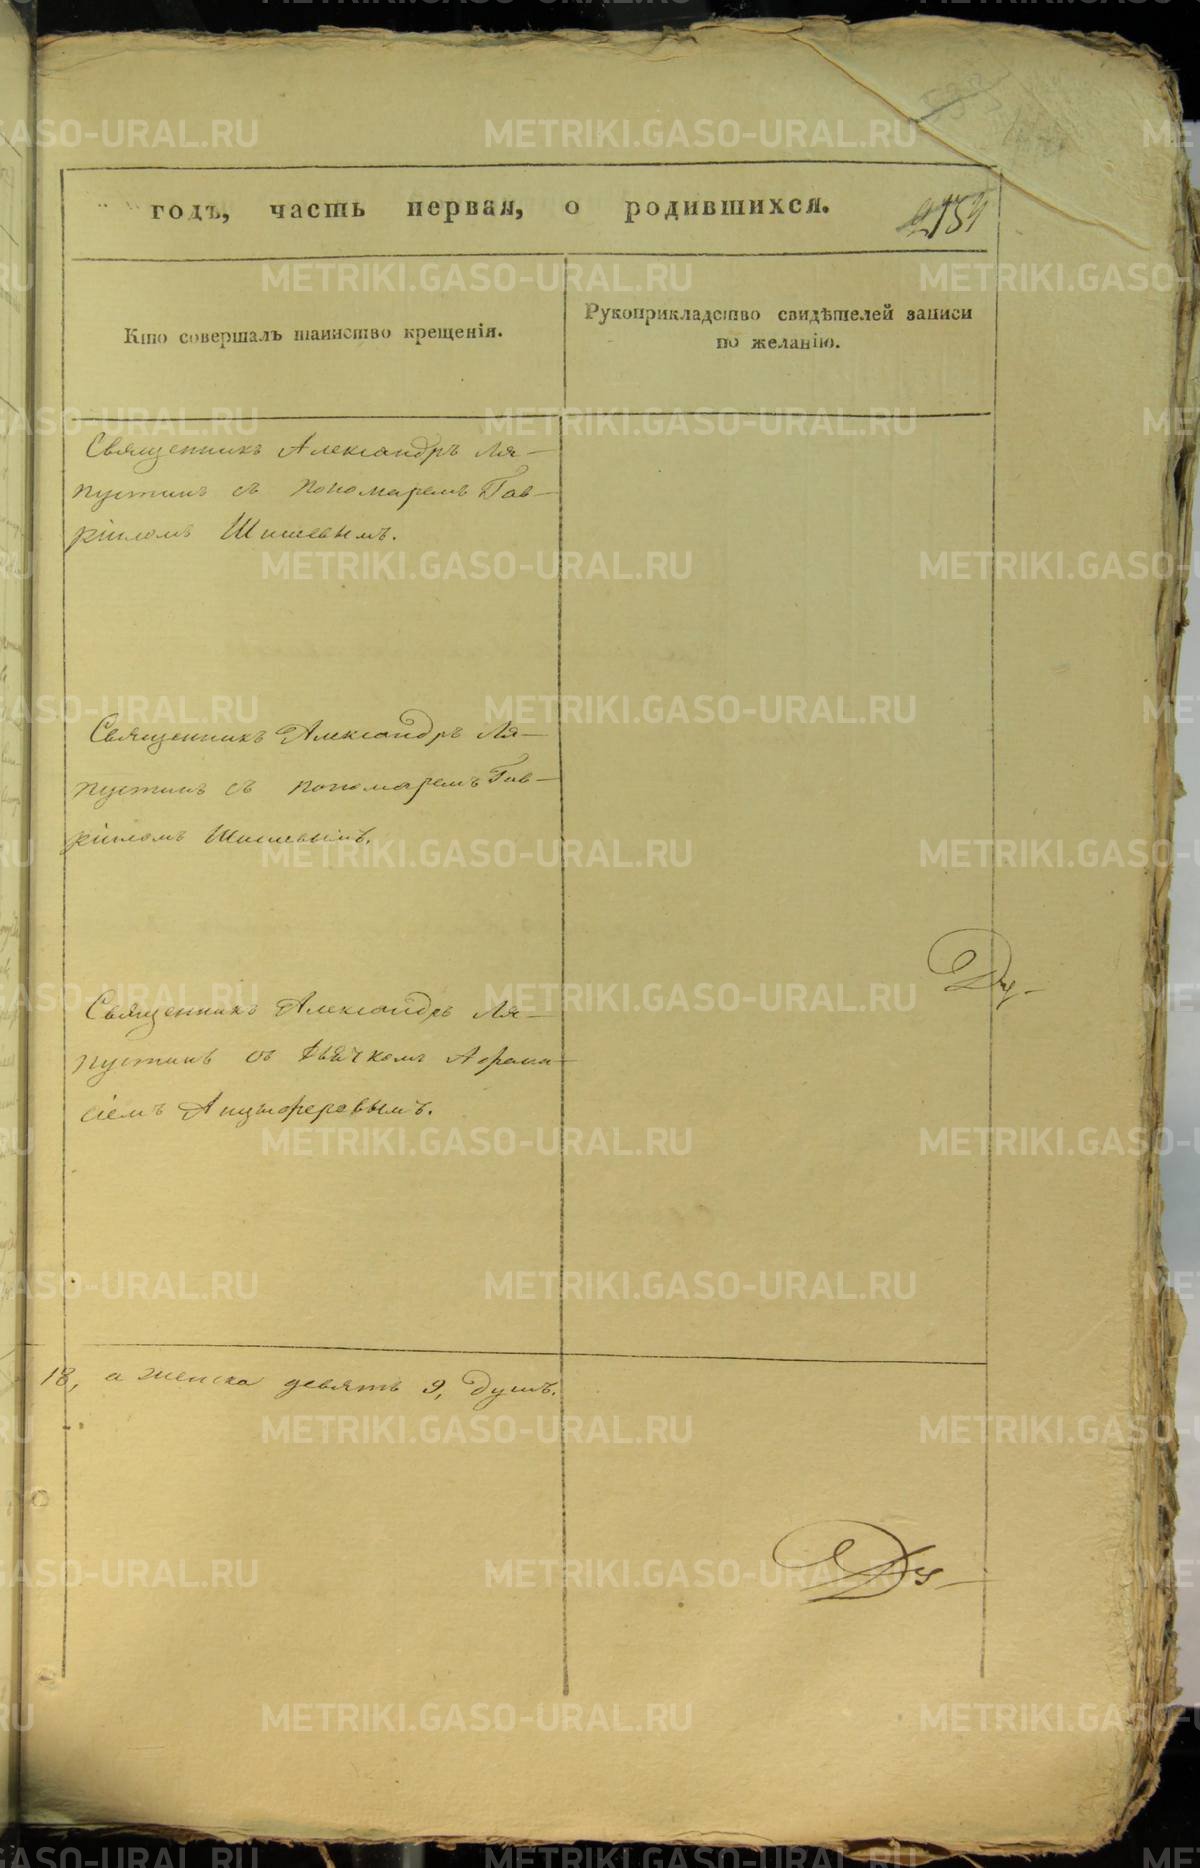 годъ, часть первая, о родившихся.
Кто совершалъ таинство крещенія.
Рукоприкладство свидѣтелей записи
по желанію.
Священникъ Александръ Ля-
пустинъ съ пономаремъ Гав-
ріиломъ Шишевымъ.
Священникъ Александръ Ля-
пустинъ съ пономаремъ Гав-
ріиломъ Шишевымъ.
Священникъ Александръ Ля-
пустинъ съ дьячкомъ Афана-
сіемъ Анциферовымъ.
18, а женска девять 9, душъ.
METRIKI.GASO-URAL.RU